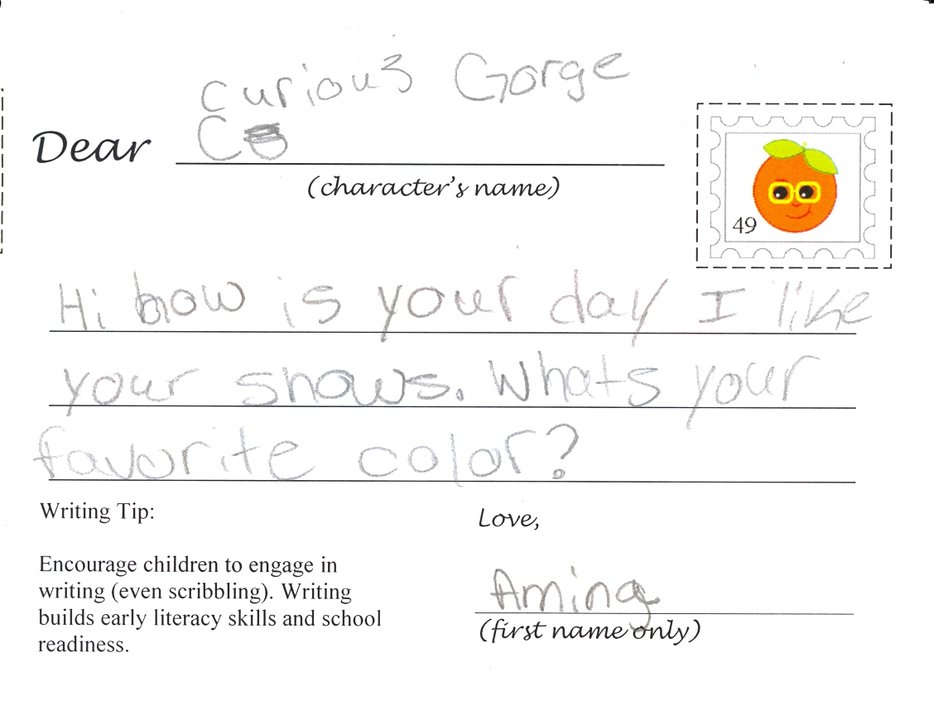 curious Gorge
Dear C
(character's name)
49
Hi how is your day I like
your shows. Whats your
favorite color?
Writing Tip:
Love,
Encourage children to engage in
writing (even scribbling). Writing
builds early literacy skills and school
readiness.
Amina
(first name only)